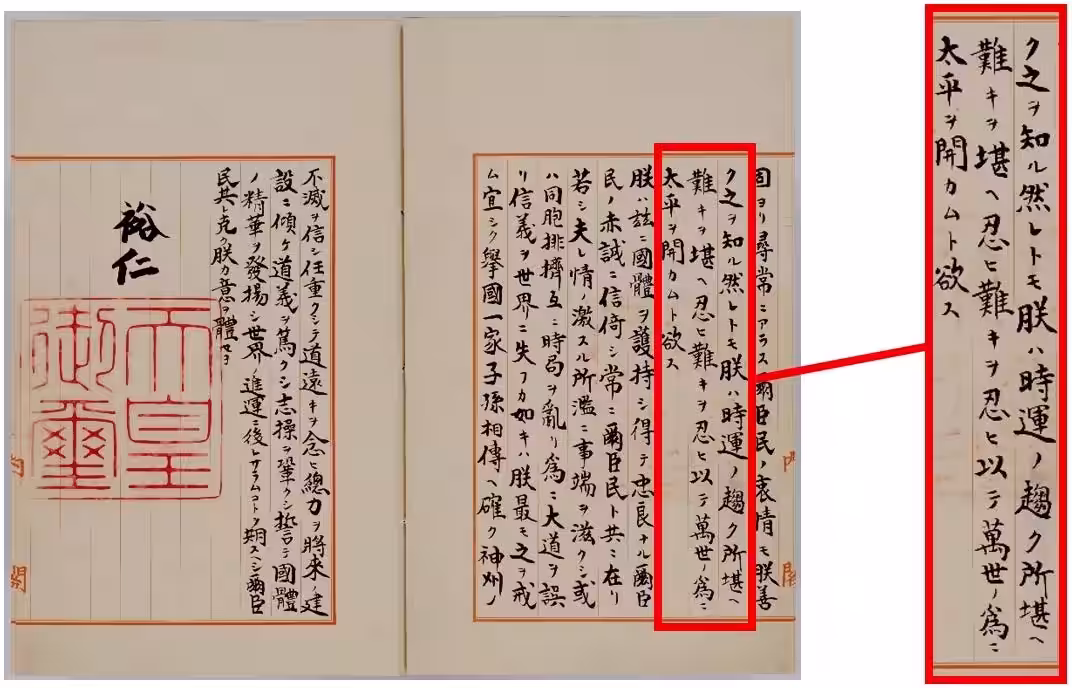 固ヨリ尋常ニアラス爾臣民ノ衷情モ朕善
ク之ヲ知ル然レトモ朕ハ時運ノ趨ク所堪ヘ
難キヲ堪ヘ忍ヒ難キヲ忍ヒ以テ萬世ノ爲ニ
太平ヲ開カムト欲ス
朕ハ玆ニ國體ヲ護持シ得テ忠良ナル爾臣
民ノ赤誠ニ信倚シ常ニ爾臣民ト共ニ在リ
若シ夫レ情ノ激スル所濫ニ事端ヲ滋クシ或
ハ同胞排擠互ニ時局ヲ亂リ爲ニ大道ヲ誤
リ信義ヲ世界ニ失フカ如キハ朕最モ之ヲ戒
ム宜シク擧國一家子孫相傳ヘ確ク神州ノ
不滅ヲ信シ任重クシテ道遠キヲ念ヒ總力ヲ將來ノ建
設ニ傾ケ道義ヲ篤クシ志操ヲ鞏クシ誓テ國體
ノ精華ヲ發揚シ世界ノ進運ニ後レサラムコトヲ期スヘシ爾臣
民其レ克ク朕カ意ヲ體セヨ
裕仁
天皇
御璽
ク之ヲ知ル然レトモ朕ハ時運ノ趨ク所堪ヘ
難キヲ堪ヘ忍ヒ難キヲ忍ヒ以テ萬世ノ爲ニ
太平ヲ開カムト欲ス